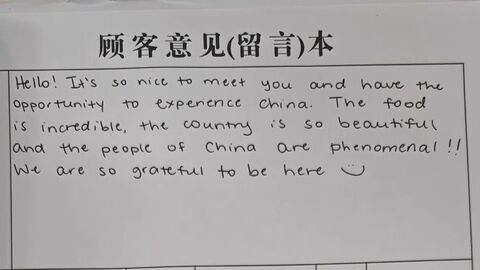 顾客意见(留言)本
Hello! It's so nice to meet you and have the
opportunity to experience China. The food
is incredible, the country is so beautiful
and the people of China are phenomenal!!
We are so grateful to be here